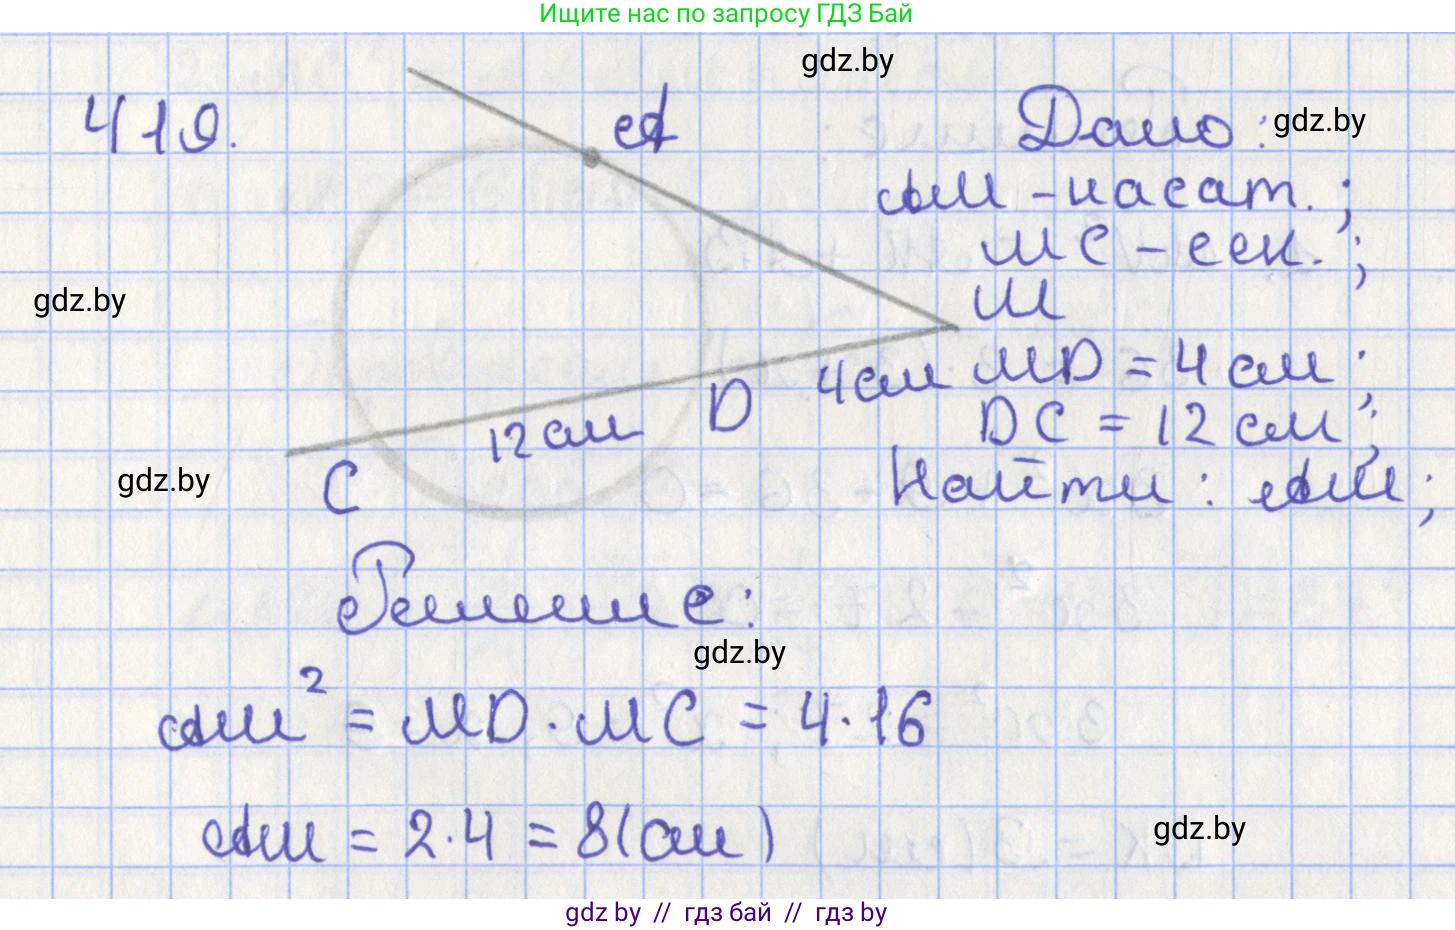 Ищите нас по запросу ГДЗ Бай
gdz.by
419.
A
Дано:
gdz.by
AM - касат.;
MC - сек.;
gdz.by
M
4 см
MD = 4 см;
D
12 см
DC = 12 см;
gdz.by
C
Найти: AM;
Решение:
gdz.by
AM² = MD · MC = 4 · 16
AM = 2 · 4 = 8 (см)
gdz.by
gdz by // гдз бай // гдз by